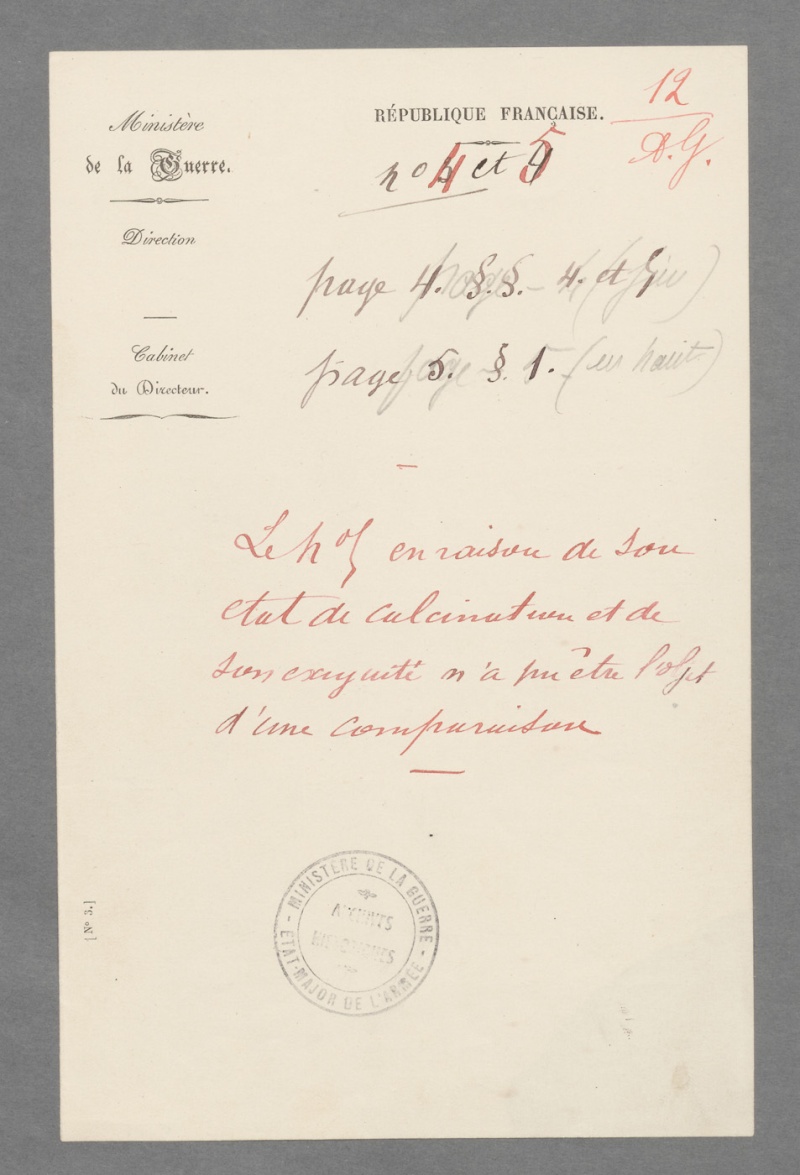 Ministère
de la Guerre.
Direction
Cabinet
du Directeur.
RÉPUBLIQUE FRANÇAISE.
12
A.G.
no 4 et 5
page 4. §.§. 4. et
page 5. §. 1. (en haut)
Le no en raison de son
etat de calcination et de
son exiguité n'a pu être l'objet
d'une comparaison
MINISTÈRE DE LA GUERRE
ARCHIVES
HISTORIQUES
ÉTAT-MAJOR DE L'ARMÉE
[N° 3.]